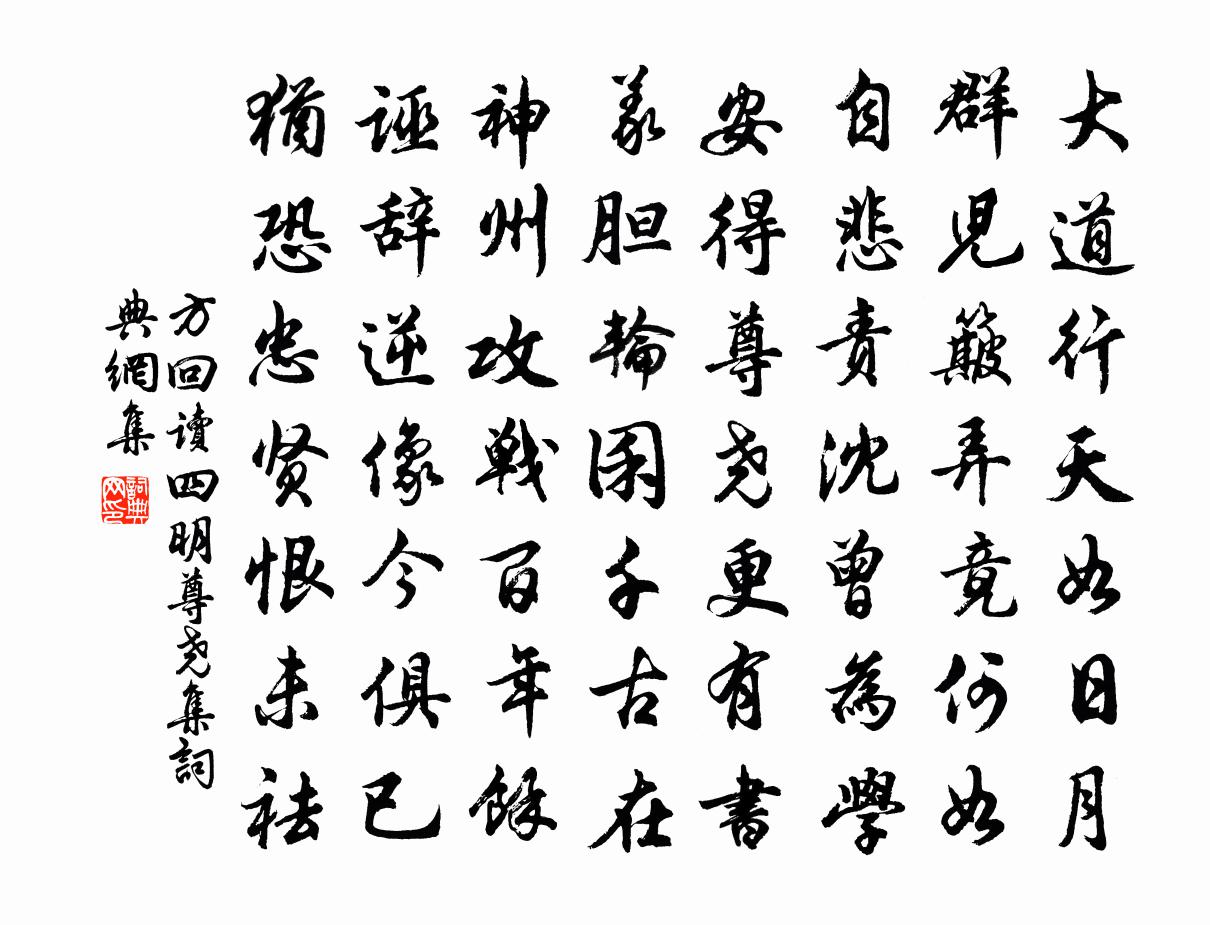 大道行天如日月
群児簸弄竟何如
自悲责沈曾為學
安得尊尧更有書
義胆輪囷千古在
神州攻戦百年餘
誣辞逆像今俱已
猶恐忠贤恨未祛
方回读四明尊尧集詞
典網集
詞典网印